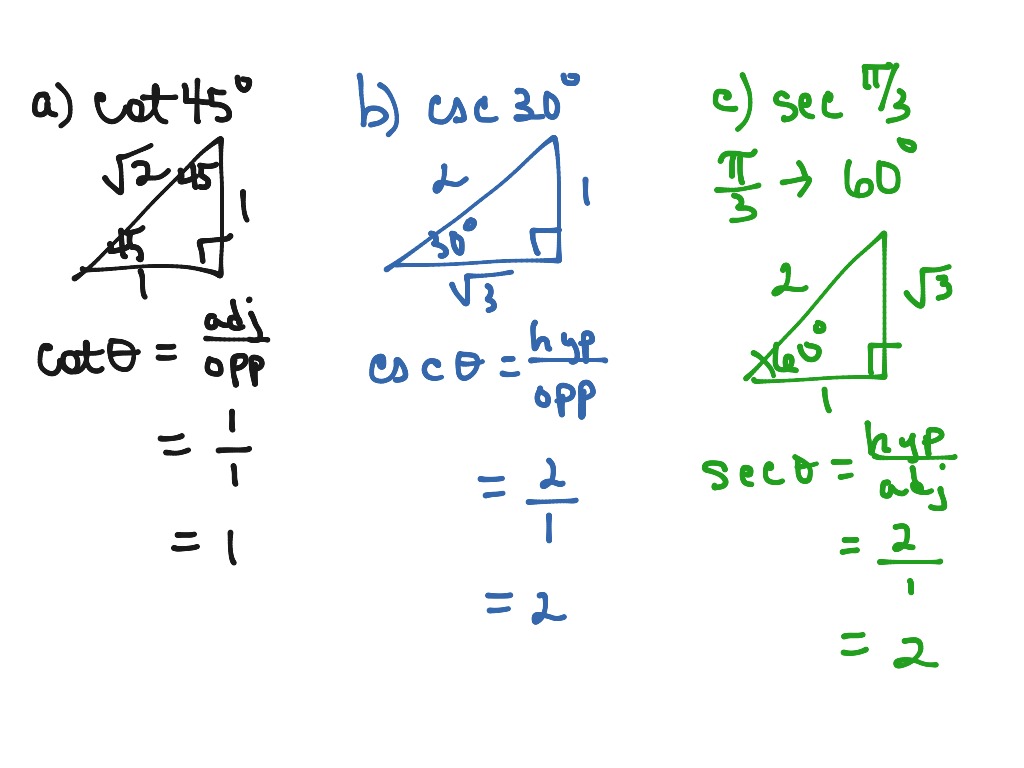 a) cot 45°
√2
45
45
1
1
cot θ = adj/opp
= 1/1
= 1
b) csc 30°
2
1
30°
√3
csc θ = hyp/opp
= 2/1
= 2
c) sec π/3
π/3 → 60°
2
√3
60°
1
sec θ = hyp/adj
= 2/1
= 2